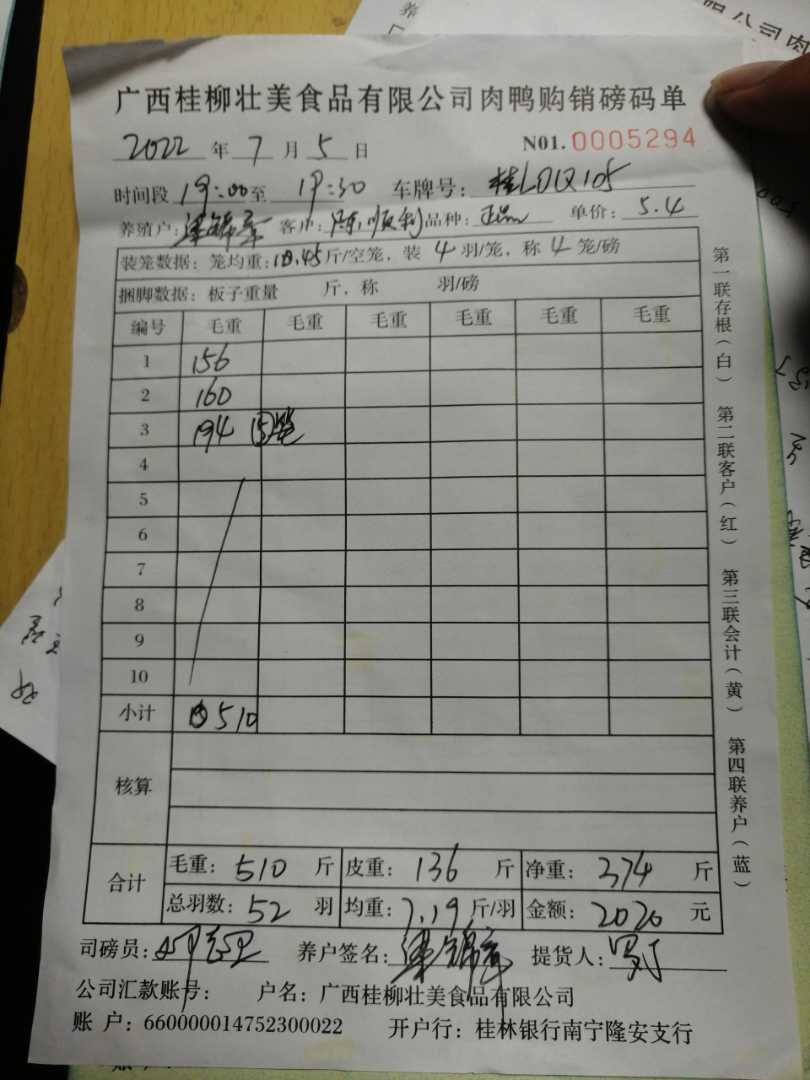 广西桂柳壮美食品有限公司肉鸭购销磅码单
2022 年 7 月 5 日 N01. 0005294
时间段 19:00 至 19:30 车牌号: 桂L
养殖户: 梁锦 客户: 陈顺利 品种: 单价: 5.4
装笼数据: 笼均重: 10.45 斤/空笼, 装 4 羽/笼, 称 4 笼/磅
捆脚数据: 板子重量 斤, 称 羽/磅
编号 毛重 毛重 毛重 毛重 毛重 毛重
1 156
2 160
3 194 ⑤笼
4
5
6
7
8
9
10
小计 510
核算
合计 毛重: 510 斤 皮重: 136 斤 净重: 374 斤
总羽数: 52 羽 均重: 7.19 斤/羽 金额: 2020 元
司磅员: 养户签名: 梁锦 提货人:
公司汇款账号: 户名: 广西桂柳壮美食品有限公司
账 户: 660000014752300022 开户行: 桂林银行南宁隆安支行
第一联存根(白) 第二联客户(红) 第三联会计(黄) 第四联养户(蓝)